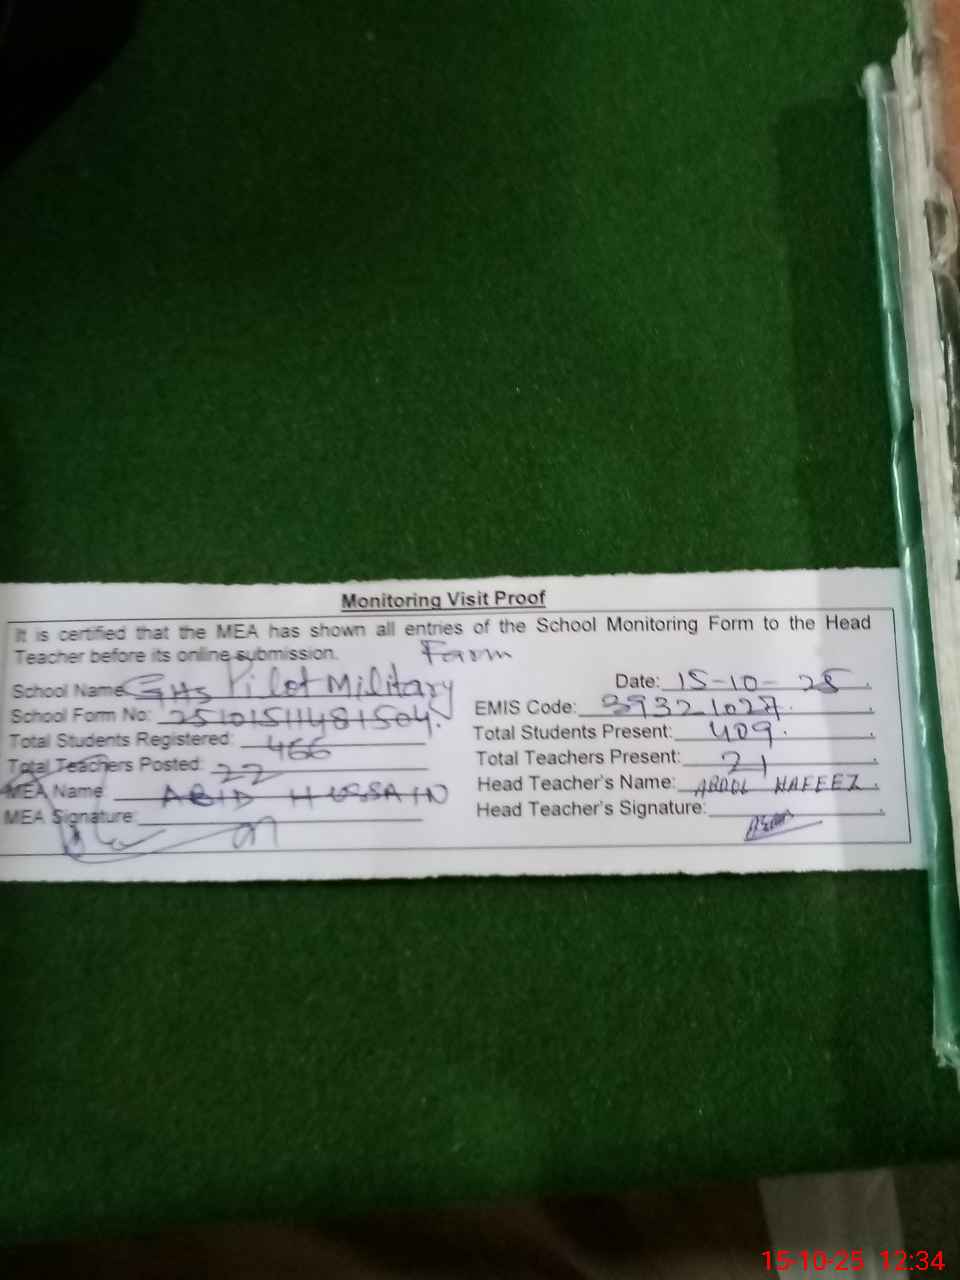 Monitoring Visit Proof
It is certified that the MEA has shown all entries of the School Monitoring Form to the Head
Teacher before its online submission.
Farm
School Name GHS Pilot Military
Date: 15-10-25
School Form No: 25101511481504.
EMIS Code: 39321027.
Total Students Registered: 466
Total Students Present: 409.
Total Teachers Posted: 22
Total Teachers Present: 21
MEA Name ABID HUSSAIN
Head Teacher's Name: ABDUL HAFEEZ.
MEA Signature:
Head Teacher's Signature:
15-10-25 12:34